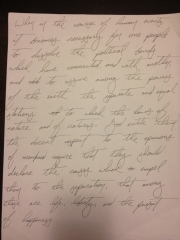 When in the course of human events
it becomes necessary for one people
to dissolve the political bonds
which have connected and with another
and to assume among the powers
of the earth the separate and equal
to which the laws of
nature and of nature's
the decent respect to the opinions
of mankind require that they should
declare the causes which impel
them to the separation, that among
these are life, and the pursuit
of happiness